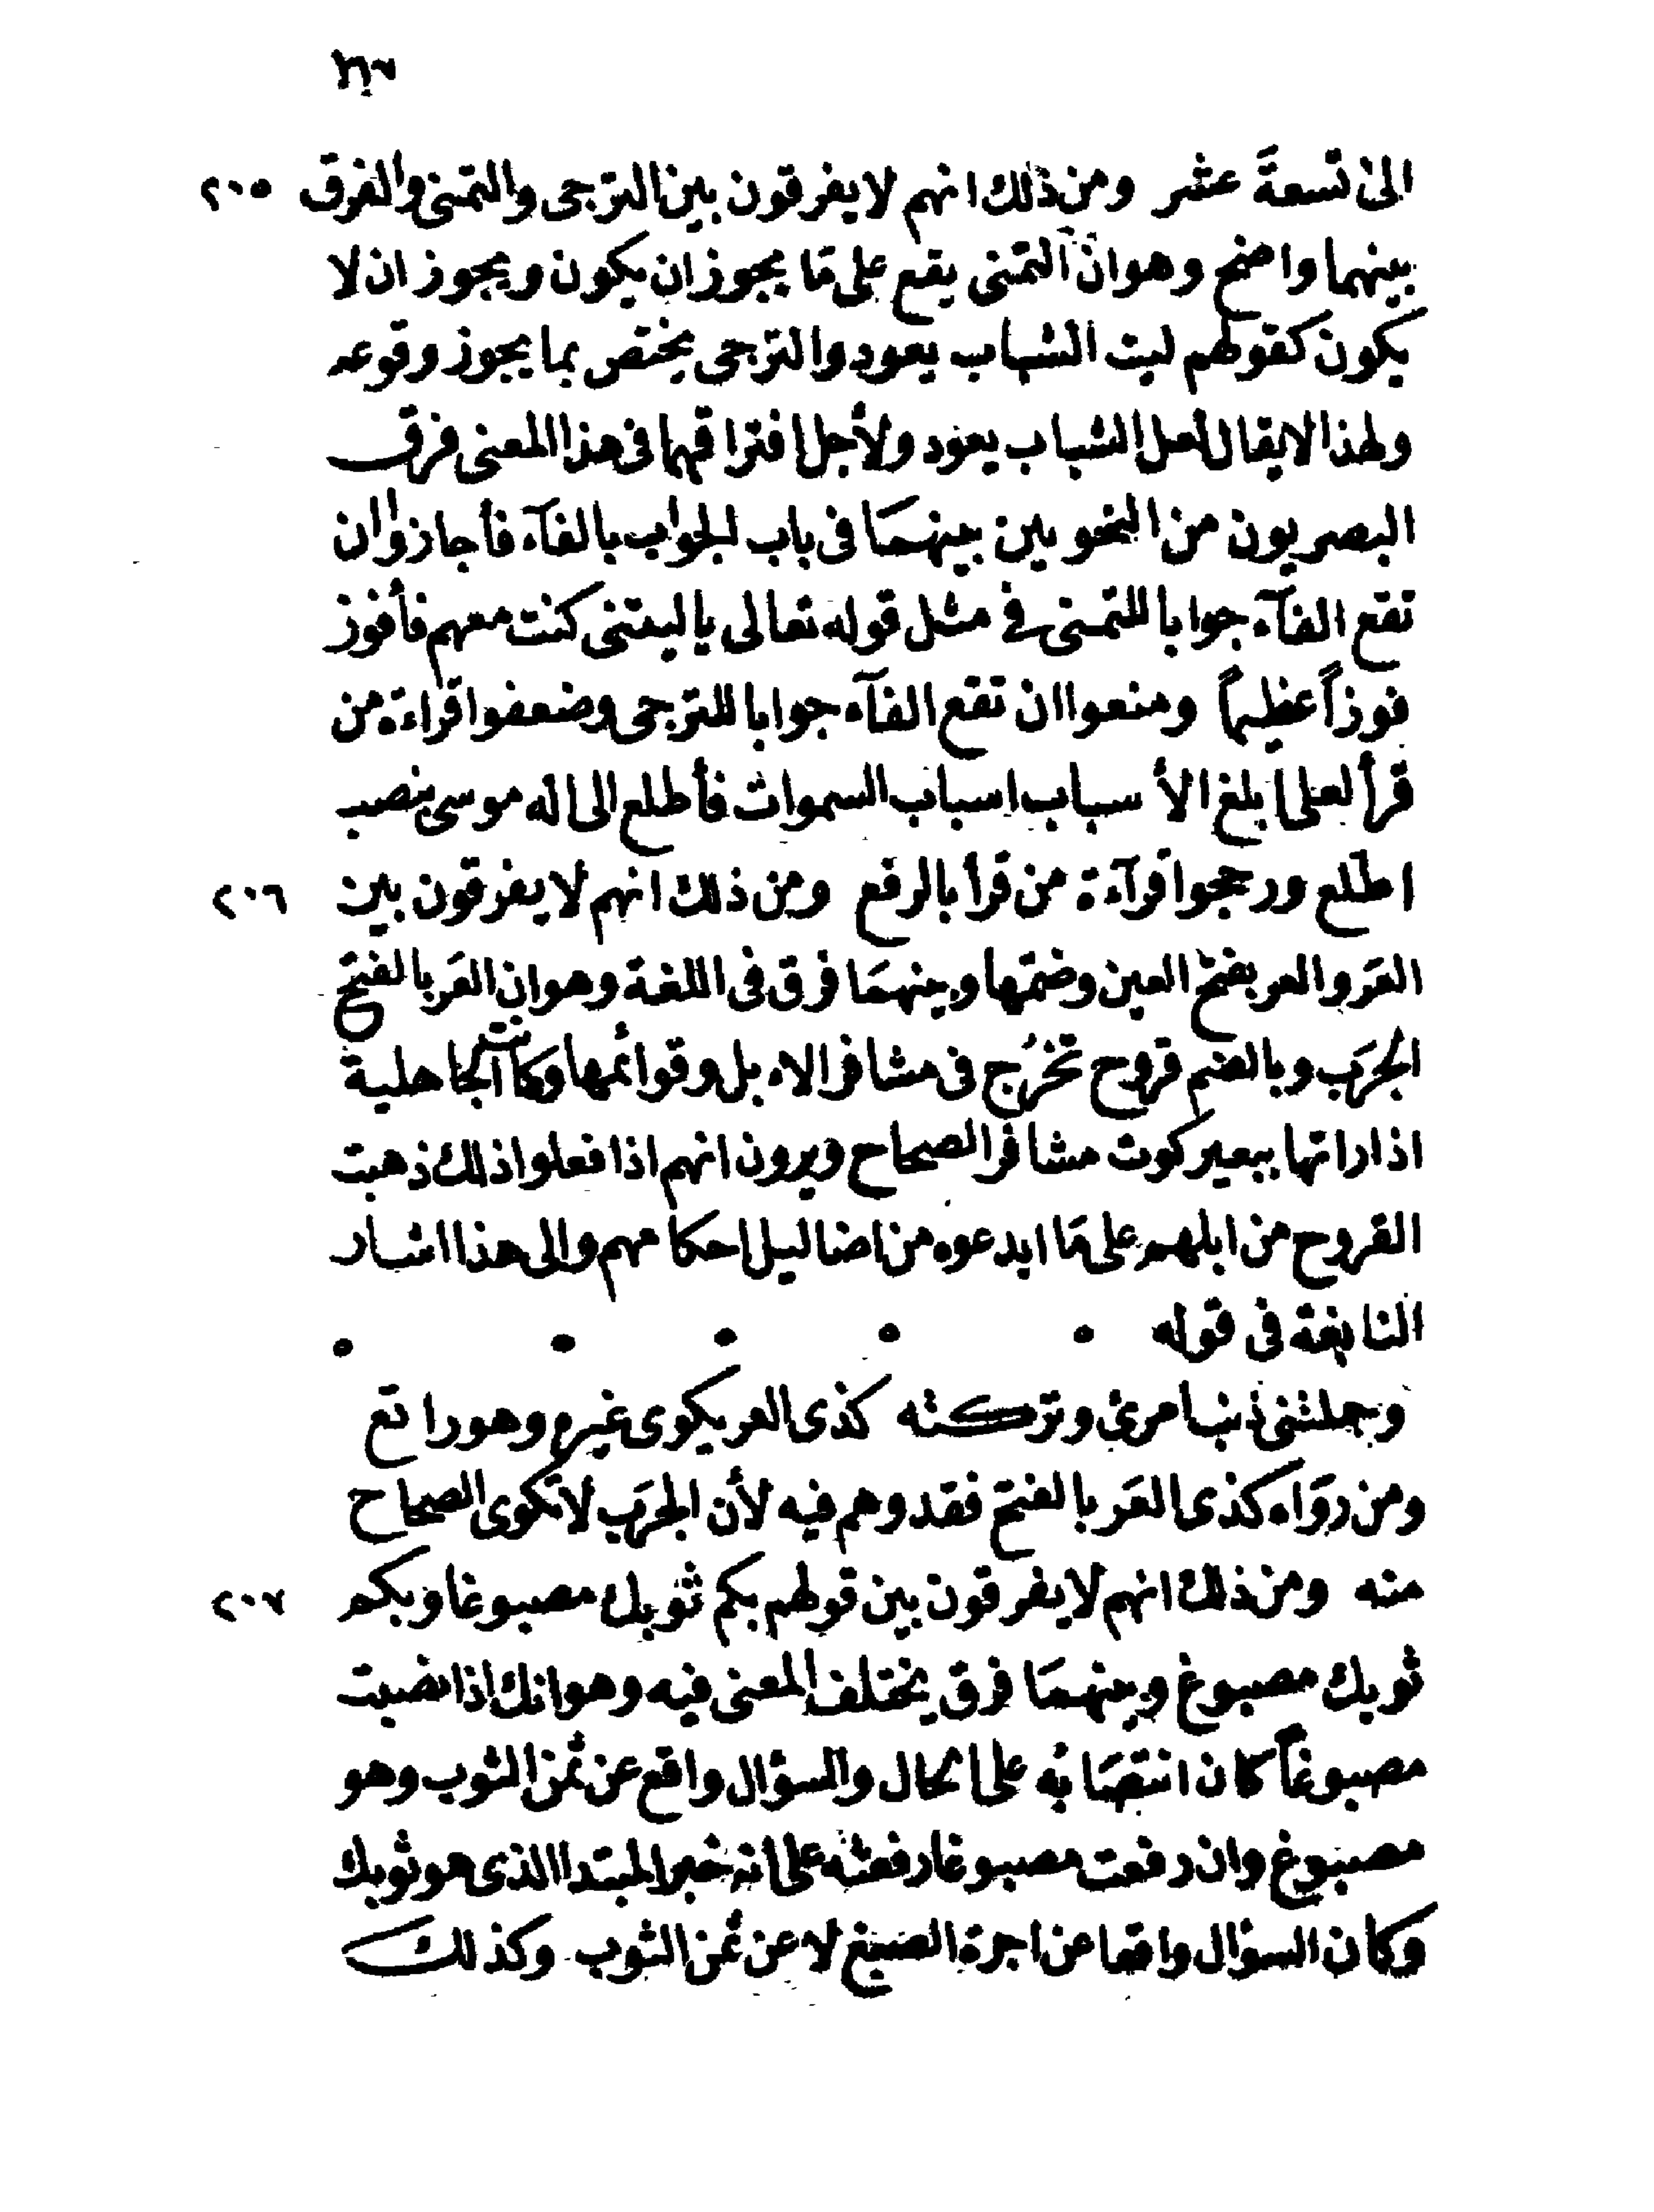 الى تسعةَ عشر ومن ذلك انهم لا يفرقون بين الترجى والتمنى والفرق ٢٠٥
بينهما واضح وهو ان التمنى يقع على مَا يجوز ان يكون ويجوز ان لا
يكون كقولهم ليت الشباب يعود والترجى يختص بما يجوز وقوعه
ولهذا لا يقال لعل الشباب يعود ولأجل افتراقهما فى هذا المعنى فرق
البصريون من النحويين بينهمَا فى باب الجواب بالفآء فأجازوا ان
تقع الفآء جوابا للتمنى فى مثل قوله تعالى يا ليتنى كنت معهم فأفوز
فوزاً عظيماً ومنعوا ان تقع الفآء جوابا للترجى وضعفوا قراءة من
قرأ لعلى ابلغ الأسباب اسباب السموات فأطلع الى اله موسى بنصب
اطلع ورجحوا قرآءة من قرأ بالرفع ومن ذلك انهم لا يفرقون بين ٢٠٦
العَر والعر بفتح العين وضمها وبينهمَا فرق فى اللغة وهو ان العَر بالفتح
الجرَب وبالضم قروح تخرُج فى مشافر الابل وقوائمها وكانت الجاهلية
اذا راتها ببعير كوت مشافر الصحاح ويرون انهم اذا فعلوا ذلك ذهبت
القروح من ابلهم على مَا ابدعوه من اضاليل احكامهم والى هذا اشار
النابغة فى قوله
وحملتنى ذنبا مرئ وتركته كذى العر يكوى غيره وهو راتع
ومن روَاه كذى العَر بالفتح فقد وهم فيه لأن الجرَب لا تكوى الصحاح
منه ومن ذلك انهم لا يفرقون بين قولهم بكم ثوبك مصبوغا وبكم ٢٠٧
ثوبك مصبوغ وبينهمَا فرق يختلف المعنى فيه وهو انك اذا نصبت
مصبوغاً كان انتصَابه على الحال والسؤال واقع عن ثمن الثوب وهو
مصبوغ وان رفعت مصبوغا رفعته على انه خبر المبتدا الذى هو ثوبك
وكان السؤال واقعا عن اجرة الصبغ لا عن ثمن الثوب وكذلك